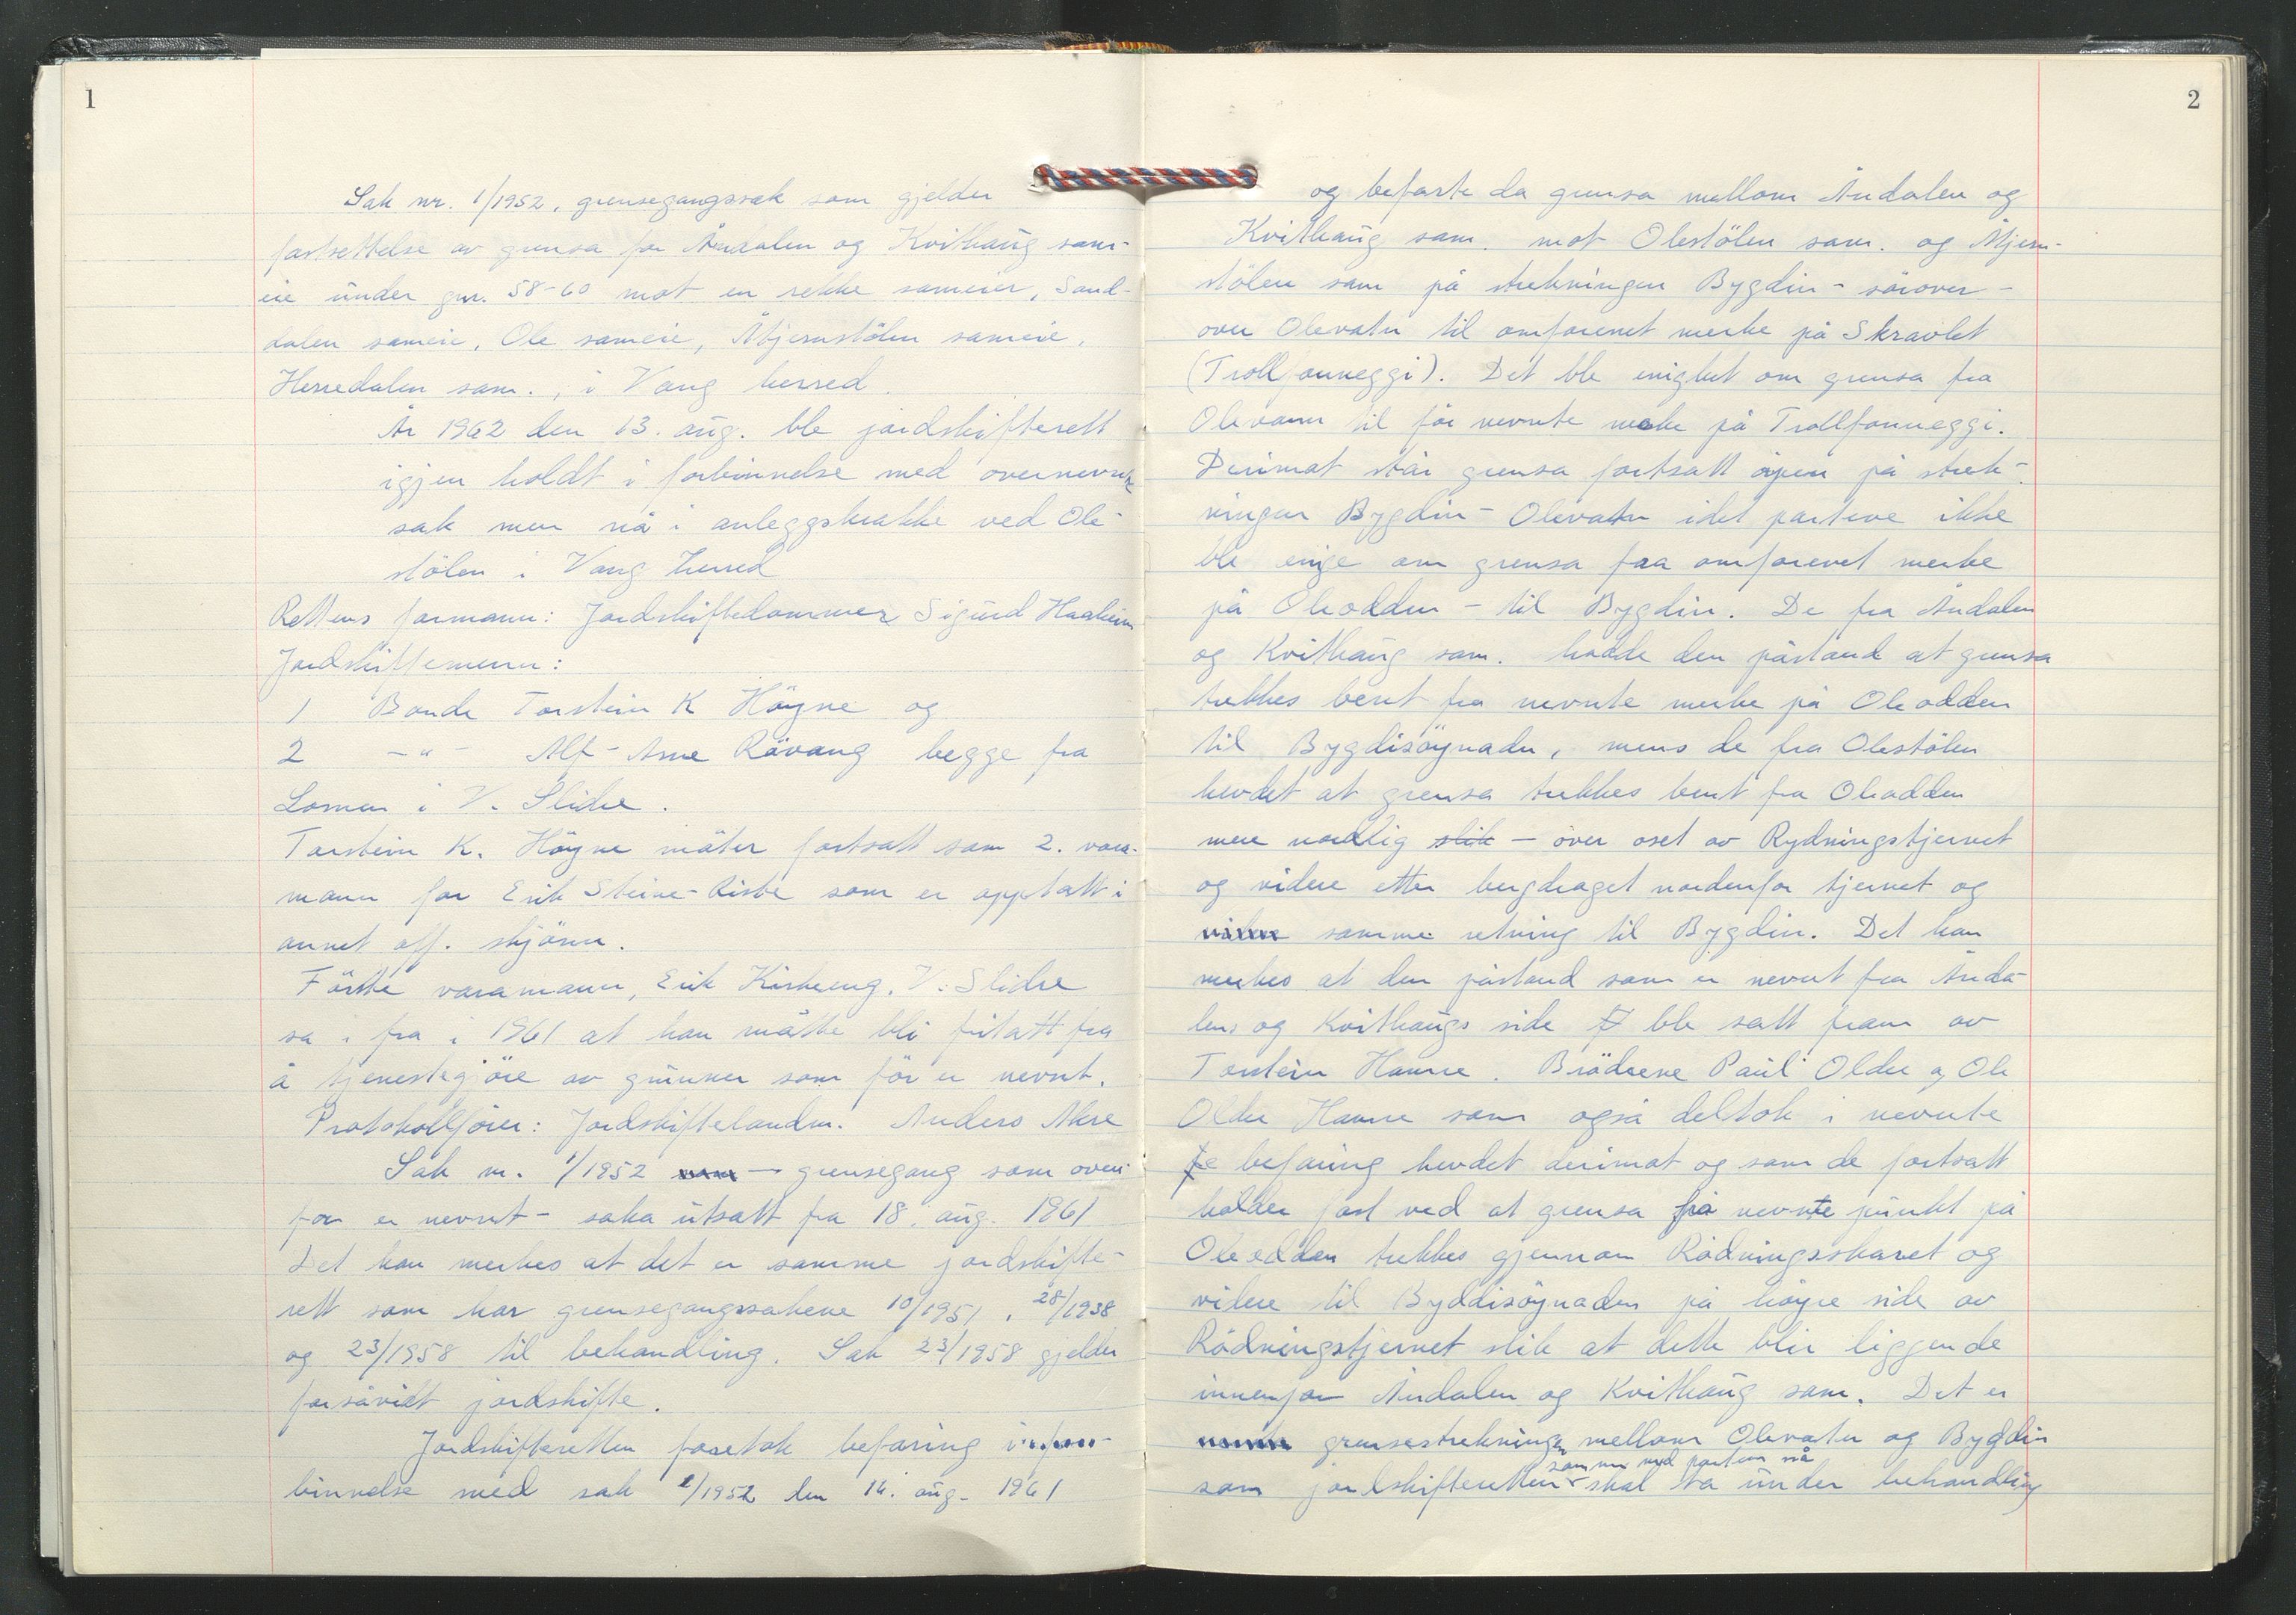 1
Sak nr. 1/1952, grensegangssak som gjelder
fastsettelse av grensa for Åndalen og Kvithaug sam-
eie under gnr. 58-60 mot en rekke sameier, Sand-
dalen sameie, Ole sameie, Åtjernstölen sameie,
Herredalen sam., i Vang herred.
År 1962 den 13. aug. ble jordskifterett
igjen holdt i forbinnelse med overnevnte
sak men nå i anleggsbrakke ved Ole-
stölen i Vang herred
Rettens formann: Jordskiftedommer Sigurd Haaheim
Jordskiftemenn:
1 Bonde Torstein K Höyne og
2 -"- Alf-Arne Rövang begge fra
Lomen i V. Slidre.
Torstein K. Höyne möter fortsatt som 2. vara-
mann for Erik Steine-Riste som er opptatt i
annet off. skjönn.
Förste varamann, Erik Kirkeeng, V. Slidre
sa i fra i 1961 at han måtte bli fritatt fra
å tjenestegjöre av grunner som för er nevnt.
Protokollförer: Jordskiftelandm. Anders Akre
Sak nr. 1/1952 – grensegang som oven-
for er nevnt - saka utsatt fra 18. aug. 1961
Det kan merkes at det er samme jordskifte-
rett som har grensegangssakene 10/1951, 28/1938
og 23/1958 til behandling. Sak 23/1958 gjelder
forsåvidt jordskifte.
Jordskifteretten foretok befaring i for-
binnelse med sak 1/1952 den 16. aug. 1961
2
og befarte da grensa mellom Åndalen og
Kvithaug sam. mot Olestölen sam. og Åtjern-
stölen sam på strekningen Bygdin - sörover -
over Olevatn til omforenet merke på Skravlet
(Trollfonneggi). Det ble enighet om grensa fra
Olevann til för nevnte merke på Trollfonneggi.
Derimot står grensa fortsatt åpen på strek-
ningen Bygdin - Olevatn idet partene ikke
ble enige om grensa fra omforenet merke
på Oleodden - til Bygdin. De fra Åndalen
og Kvithaug sam. hadde den påstand at grensa
trekkes bent fra nevnte merke på Oleodden
til Bygdisöynadn, mens de fra Olestölen
hevdet at grensa trekkes bent fra Oleodden
mere nordlig slik – över oset av Rydningstjernet
og videre etter bergdraget nordenfor tjernet og
videre samme retning til Bygdin. Det kan
merkes at den påstand som er nevnt fra Ånda-
lens og Kvithaugs side ble satt fram av
Torstein Hamre. Brödrene Paul Oldre og Ole
Oldre Hamre som også deltok i nevnte
befaring hevdet derimot og som de fortsatt
holder fast ved at grensa frå nevnte punkt på
Oleodden trekkes gjennom Rödningsskaret og
videre til Byddisöynaden på höyre side av
Rödningstjernet slik at dette blir liggende
innenfor Åndalen og Kvithaug sam. Det er
grensestrekningen mellom Olevatn og Bygdin
sammen med partene nå
som jordskifteretten skal ta under behandling